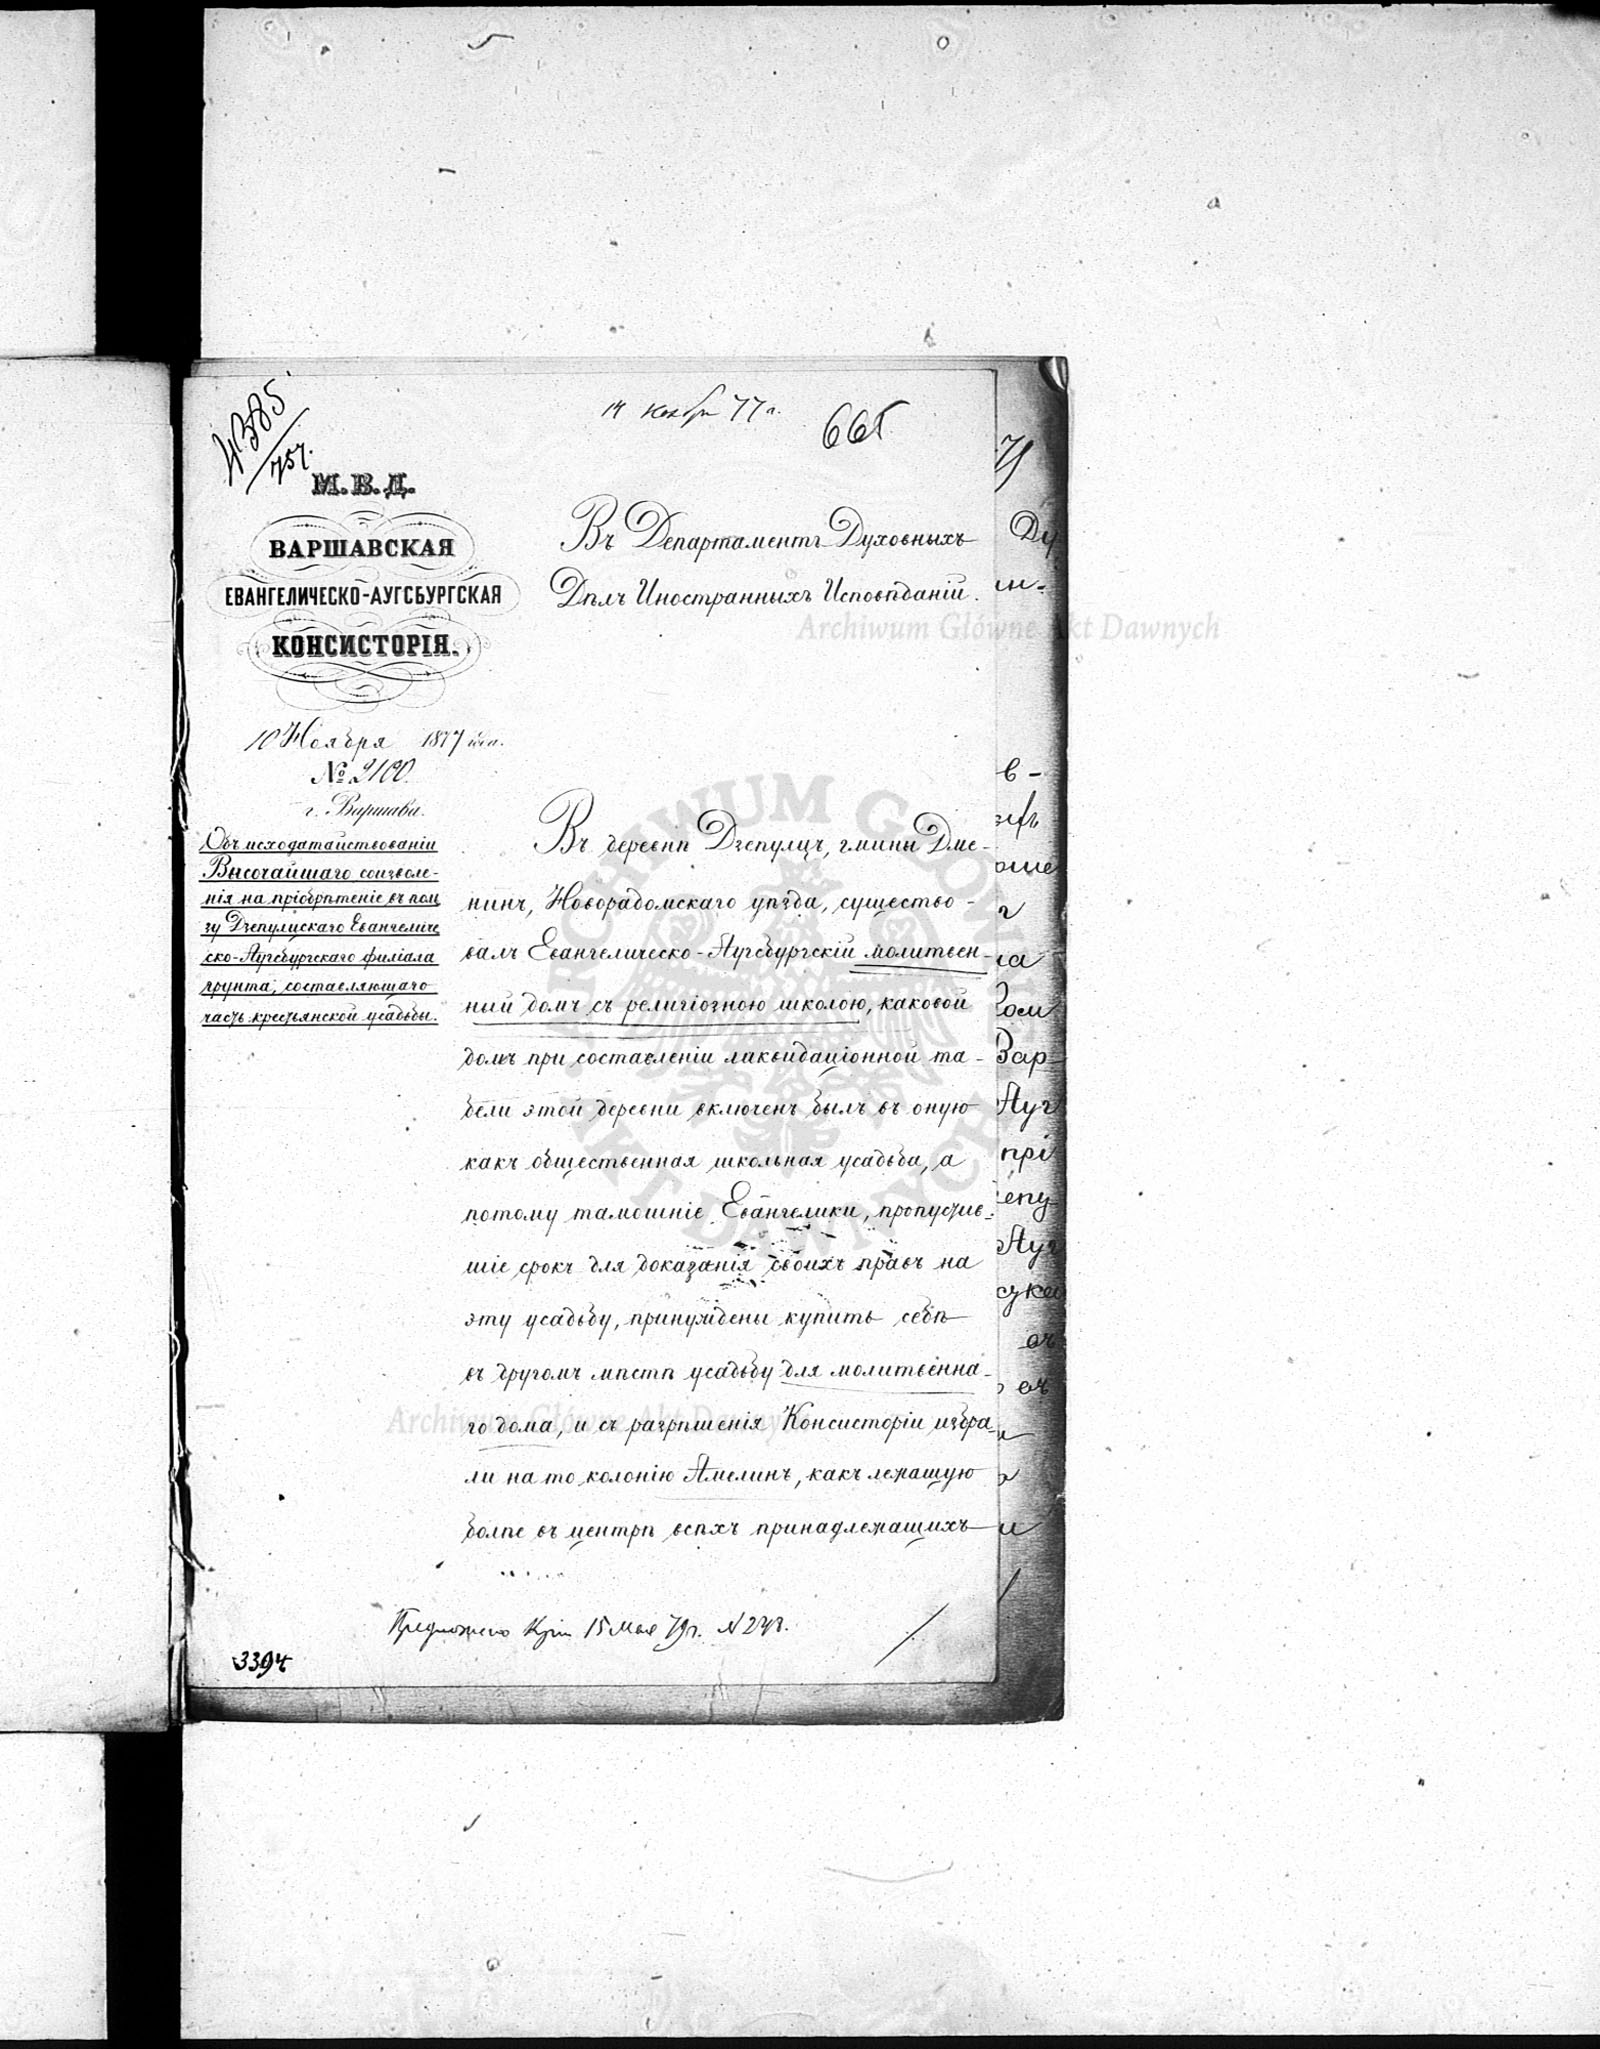 4385
757.
14 Ноября 77 г.
М. В. Д.
ВАРШАВСКАЯ
ЕВАНГЕЛИЧЕСКО-АУГСБУРГСКАЯ
КОНСИСТОРІЯ.
10 Ноября 1877 года.
№ 2100.
г. Варшава.
Объ исходатайствованіи
Высочайшаго соизволе-
нія на пріобрѣтеніе въ поль
зу Дзепулцскаго Евангеличе
ско-Аугсбургскаго филіала
грунта, составляющаго
часть крестьянской усадьбы.
Въ Департаментъ Духовныхъ
Дѣлъ Иностранныхъ Исповѣданій.
Въ деревнѣ Дзепулць, гмины Дме-
нинъ, Новорадомскаго уѣзда, существо-
валъ Евангелическо-Аугсбургскій молитвен-
ный домъ съ религіозною школою, каковой
домъ при составленіи ликвидаціонной та-
бели этой деревни включенъ былъ въ оную
какъ общественная школьная усадьба, а
потому тамошніе Евангелики, пропустив-
шіе срокъ для доказанія своихъ правъ на
эту усадьбу, принуждены купить себѣ
въ другомъ мѣстѣ усадьбу для молитвенна-
го дома, и съ разрѣшенія Консисторіи избра-
ли на то колонію Амелинъ, какъ лежащую
болѣе въ центрѣ всѣхъ принадлежащихъ
Предложено 15 Мая 79 г. № 248.
3394
Archiwum Główne Akt Dawnych
ARCHIWUM GŁÓWNE AKT DAWNYCH
Archiwum Główne Akt Dawnych